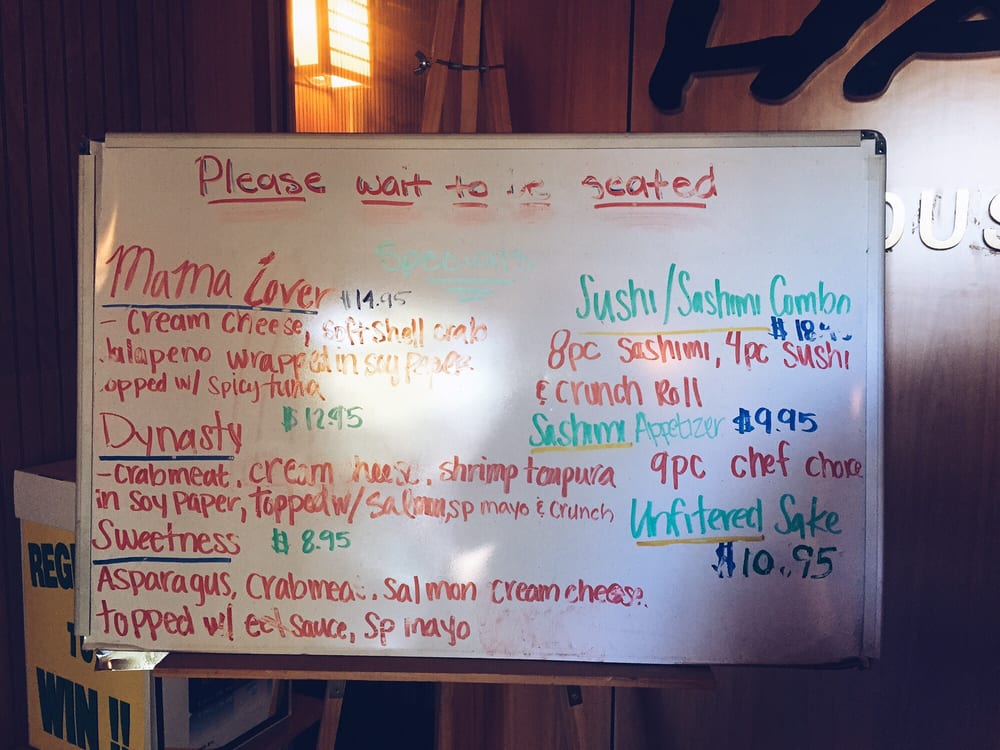 HA
OUS
Please wait to be seated
Specials
Mama Lover $14.95
- cream cheese, soft shell crab
Jalapeno wrapped in soy paper
opped w/ spicy tuna
Dynasty $12.95
- crabmeat, cream heese, shrimp tempura
in soy paper, topped w/ salmon, sp mayo & crunch
Sweetness $8.95
Asparagus, crabmeat, salmon cream cheese
topped w/ eel sauce, sp mayo
Sushi/Sashimi Combo
8pc sashimi, 4pc sushi
& crunch Roll
Sashimi Appetizer $9.95
9pc chef choice
Unfitered Sake
$10.95
REG
TO
WIN!!